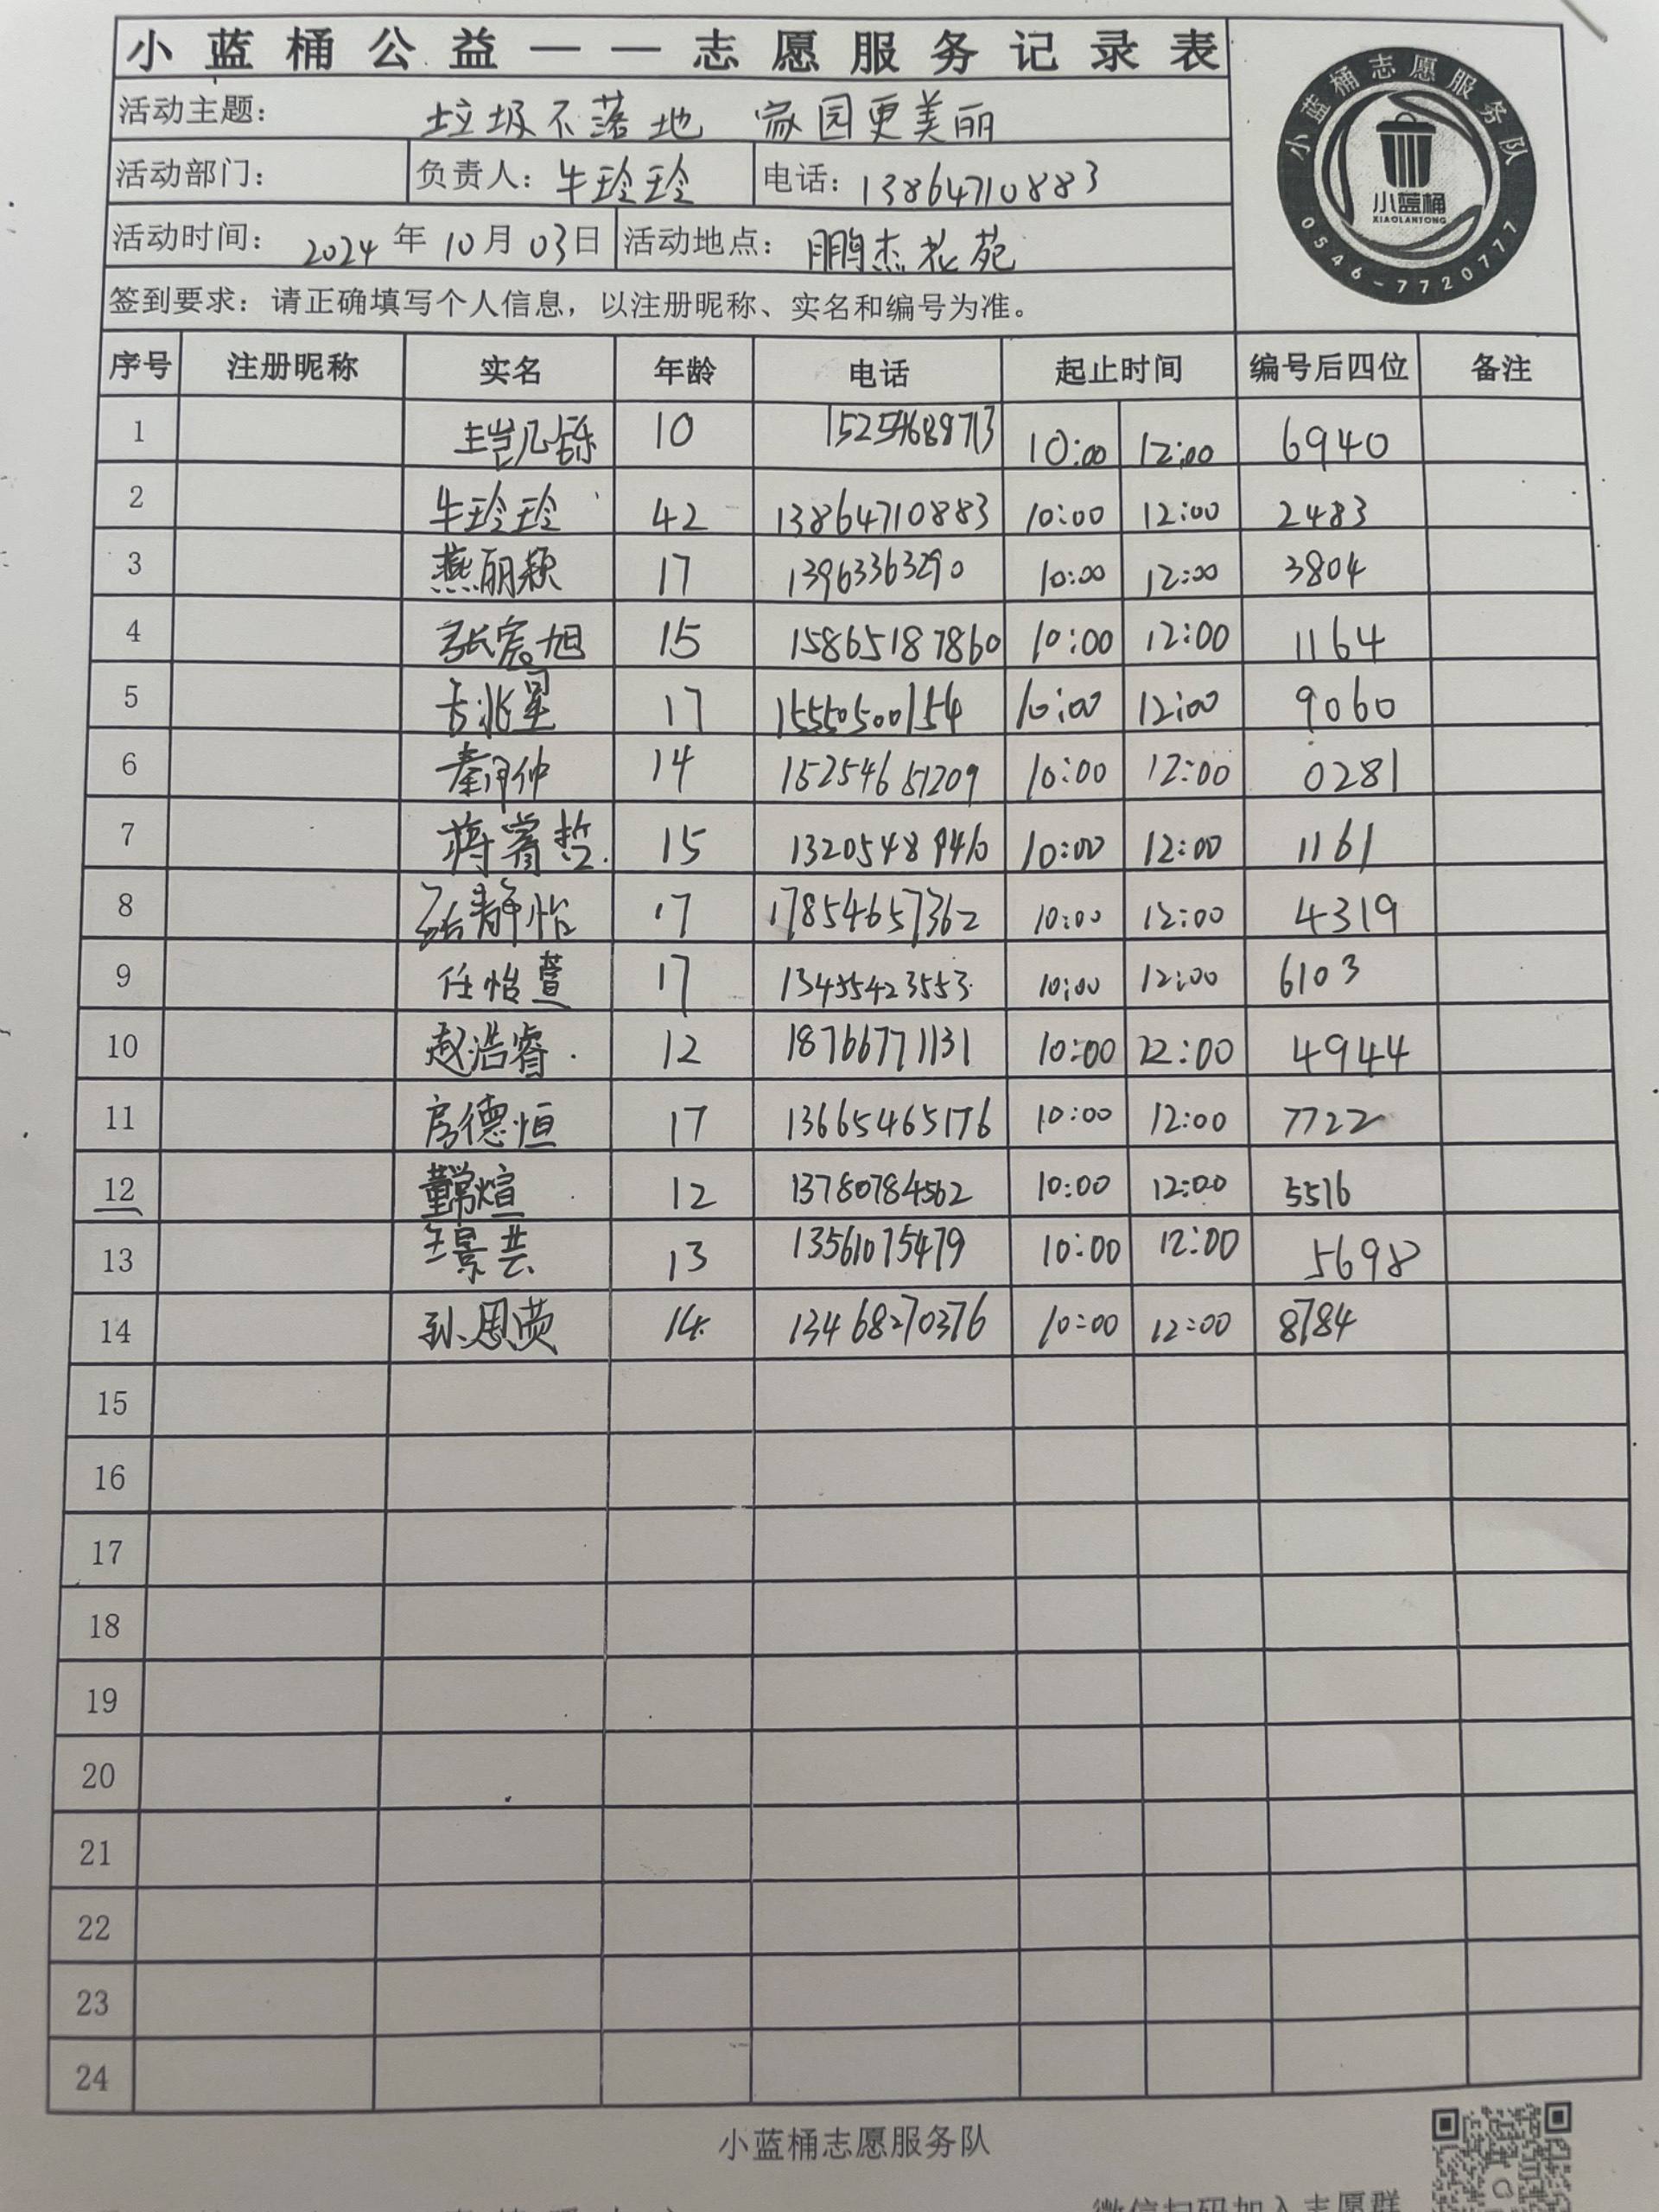 小蓝桶公益——志愿服务记录表
小蓝桶志愿服务队
小蓝桶
XIAOLANTONG
0546-7720777
活动主题： 垃圾不落地 家园更美丽
活动部门： 负责人：牛玲玲 电话：13864710883
活动时间： 2024年10月03日 活动地点： 鹏杰花苑
签到要求：请正确填写个人信息，以注册昵称、实名和编号为准。
序号 注册昵称 实名 年龄 电话 起止时间 编号后四位 备注
1 10 15254689713 10:00 12:00 6940
2 牛玲玲 42 13864710883 10:00 12:00 2483
3 燕丽颖 17 13963363290 10:00 12:00 3804
4 张宸旭 15 15865187860 10:00 12:00 1164
5 17 15550500154 10:00 12:00 9060
6 14 15254651209 10:00 12:00 0281
7 蒋睿哲 15 13205489460 10:00 12:00 1161
8 静怡 17 17854657362 10:00 12:00 4319
9 任怡萱 17 13455423553 10:00 12:00 6103
10 赵浩睿 12 18766771131 10:00 12:00 4944
11 房德恒 17 13665465176 10:00 12:00 7722
12 董常煊 12 13780784562 10:00 12:00 5516
13 王景芸 13 13561075479 10:00 12:00 5698
14 孙思荧 14 13468270376 10:00 12:00 8784
15
16
17
18
19
20
21
22
23
24
小蓝桶志愿服务队
微信扫码加入志愿群